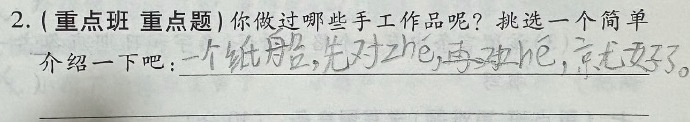 2.(重点班 重点题)你做过哪些手工作品呢?挑选一个简单
介绍一下吧:一个纸船,先对zhé,再对zhé,京尤好了。